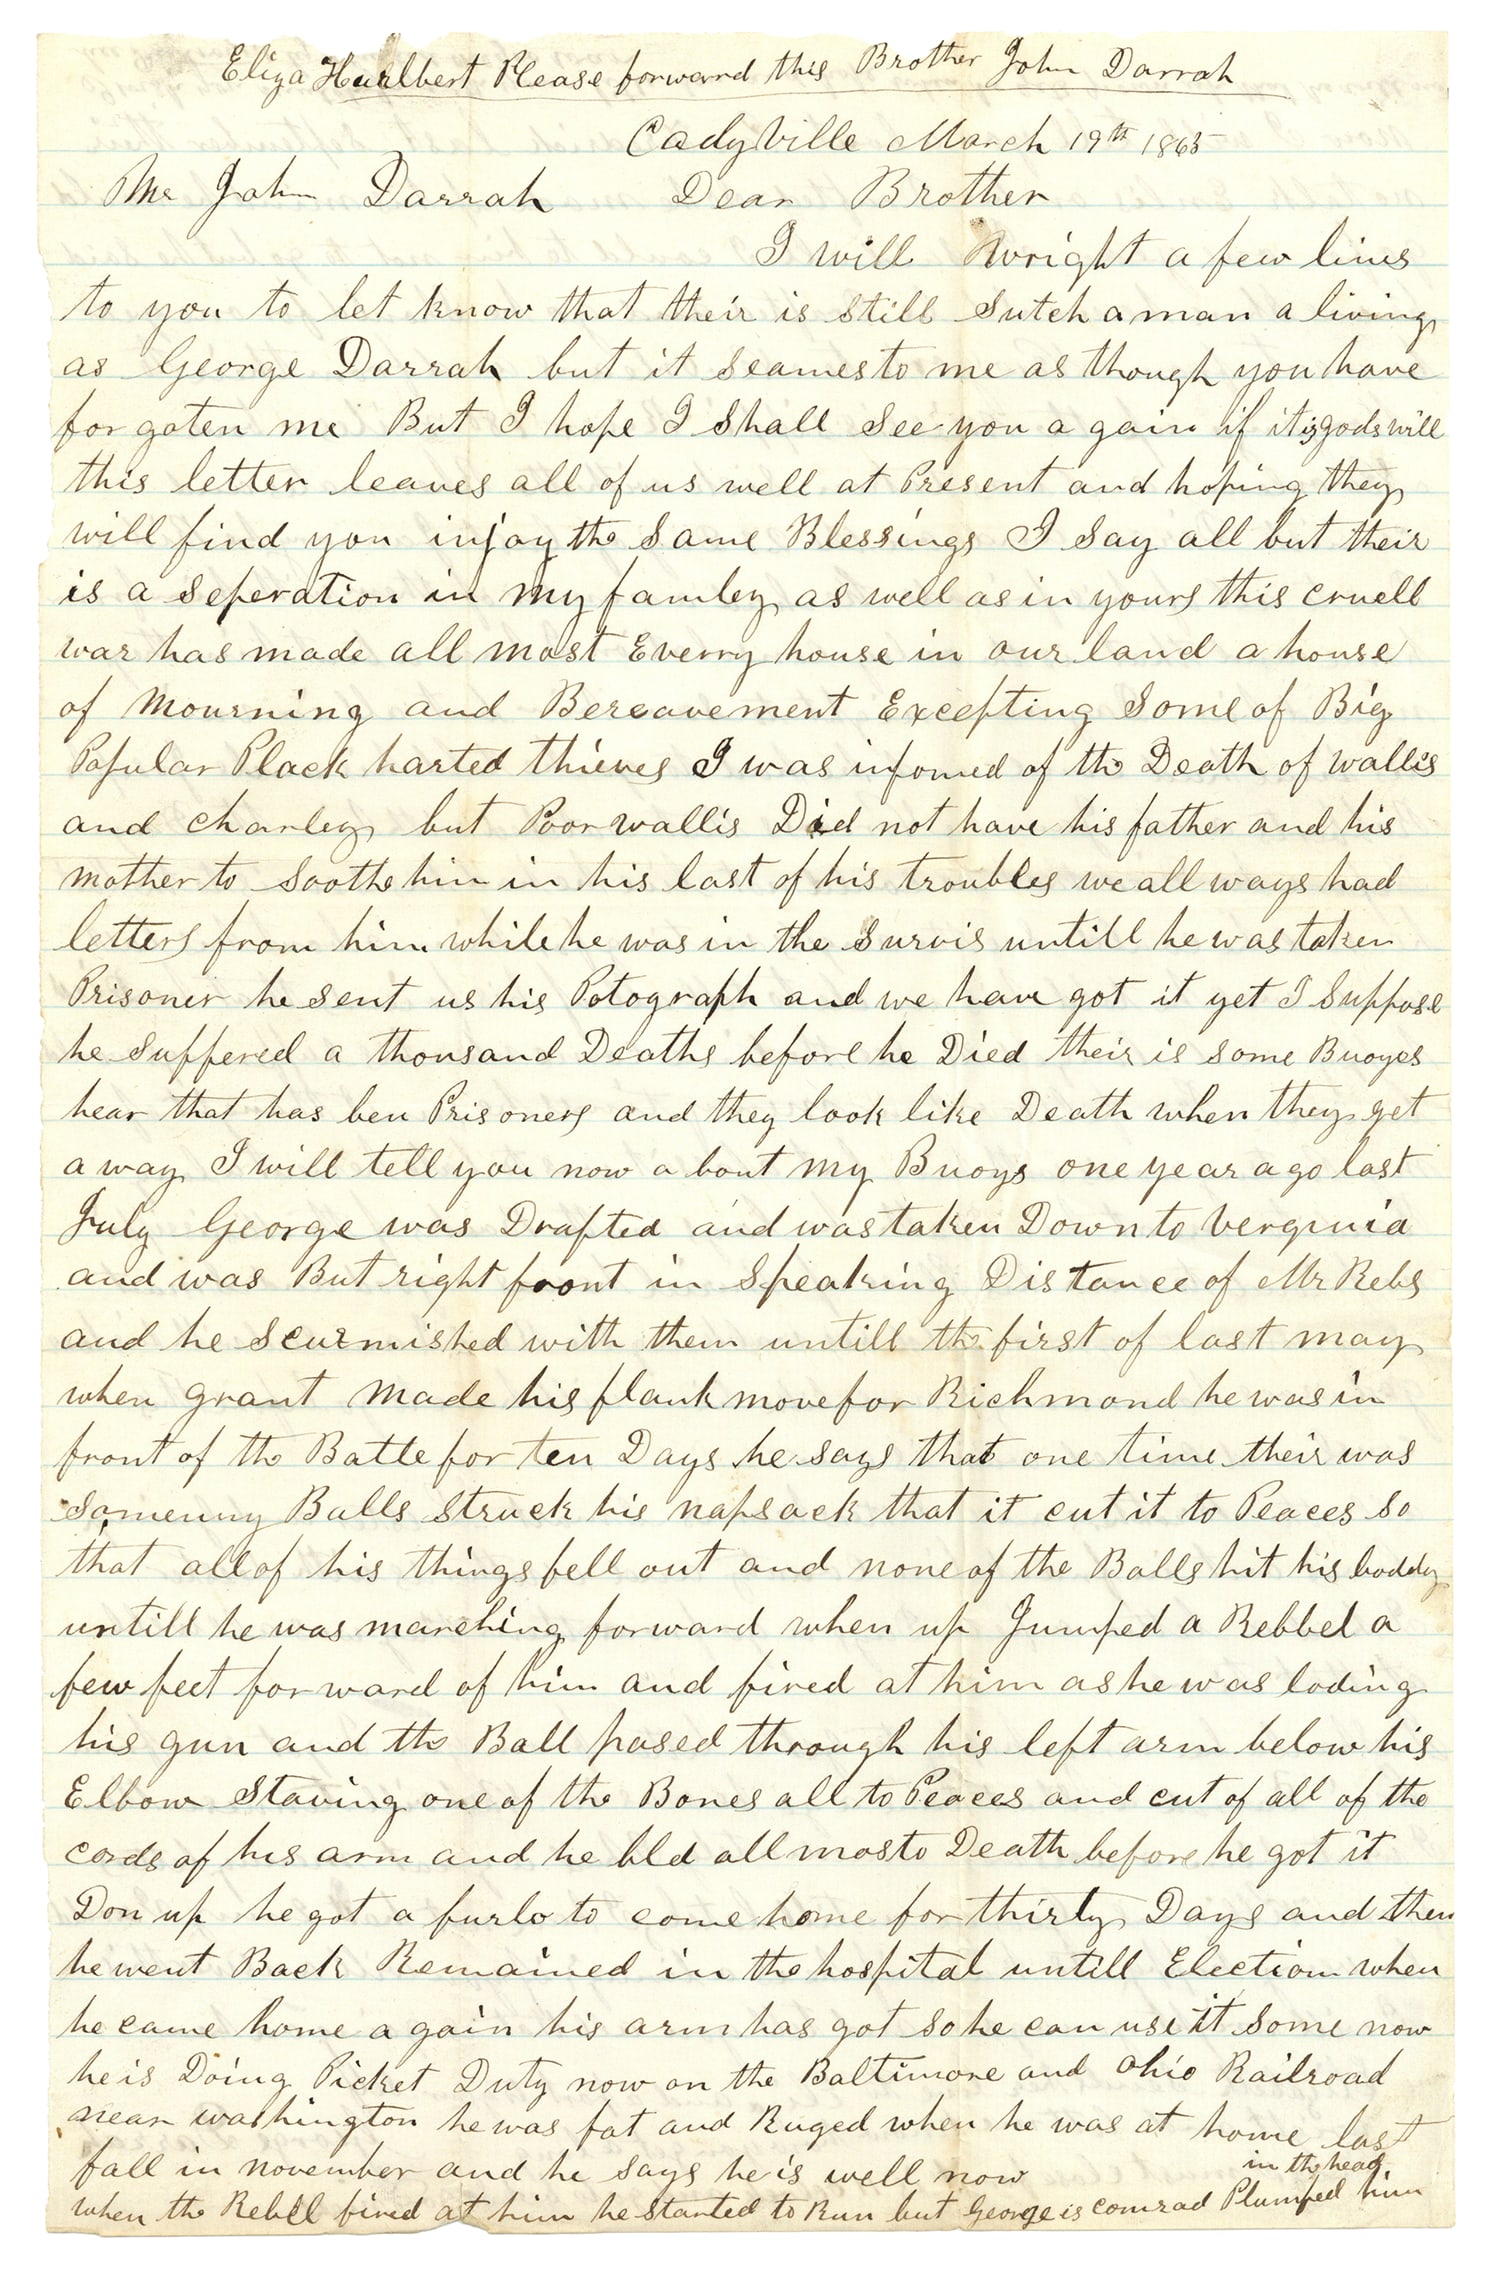 Eliza Hurlbert Please forward this Brother John Darrah
Cadyville March 19th 1865
Mr John Darrah Dear Brother
I will wright a few lines
to you to let know that their is still sutch a man a living
as George Darrah but it seames to me as though you have
forgoten me But I hope I shall see you a gain if it is gods will
this letter leaves all of us well at Present and hoping they
will find you injoy the same Blessings I say all but their
is a seperation in my famley as well as in yours this cruell
war has made all most Everry house in our land a house
of Mourning and Bereavement Excepting some of Big
Popular Black harted thieves I was infomed of the Death of wallis
and charley but Poor wallis Did not have his father and his
mother to soothe him in his last of his troubles we all ways had
letters from him while he was in the survis untill he was taken
Prisoner he sent us his Potograph and we have got it yet I suppose
he suffered a thousand Deaths before he Died their is some Buoyes
hear that has ben Prisoners and they look like Death when they get
a way I will tell you now a bout my Buoys one year a go last
July George was Drafted and was taken Down to verginia
and was But right front in speaking Distance of Mr Rebs
and he scurmished with them untill the first of last may
when grant made his flank move for Richmond he was in
front of the Batle for ten Days he says that one time their was
somenny Balls struck his napsack that it cut it to Peaces so
that all of his things fell out and none of the Balls hit his boddy
untill he was marching forward when up Jumped a Rebbel a
few feet forward of him and fired at him as he was loding
his gun and the Ball pased through his left arm below his
Elbow Staving one of the Bones all to Peaces and cut of all of the
cords of his arm and he bled all most to Death before he got it
Don up he got a furlo to come home for thirty Days and then
he went Back Remained in the hospital untill Election when
he came home a gain his arm has got so he can use it some now
he is Doing Picket Duty now on the Baltimore and Ohio Railroad
near washington he was fat and Ruged when he was at home last
fall in november and he says he is well now
in the head
when the Rebel fired at him he started to Run but George is comrad Plumped him